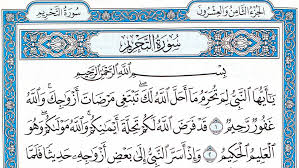 الجزء الثامن والعشرون
سورة التحريم
سُورَةُ التَّحْرِيمِ
بِسْمِ ٱللَّهِ ٱلرَّحْمَٰنِ ٱلرَّحِيمِ
يَٰٓأَيُّهَا ٱلنَّبِيُّ لِمَ تُحَرِّمُ مَآ أَحَلَّ ٱللَّهُ لَكَۖ تَبْتَغِى مَرْضَاتَ أَزْوَٰجِكَۚ وَٱللَّهُ
غَفُورٌ رَّحِيمٌ ١ قَدْ فَرَضَ ٱللَّهُ لَكُمْ تَحِلَّةَ أَيْمَٰنِكُمْۚ وَٱللَّهُ مَوْلَىٰكُمْۖ وَهُوَ
ٱلْعَلِيمُ ٱلْحَكِيمُ ٢ وَإِذْ أَسَرَّ ٱلنَّبِىُّ إِلَىٰ بَعْضِ أَزْوَٰجِهِۦ حَدِيثًا فَلَمَّا